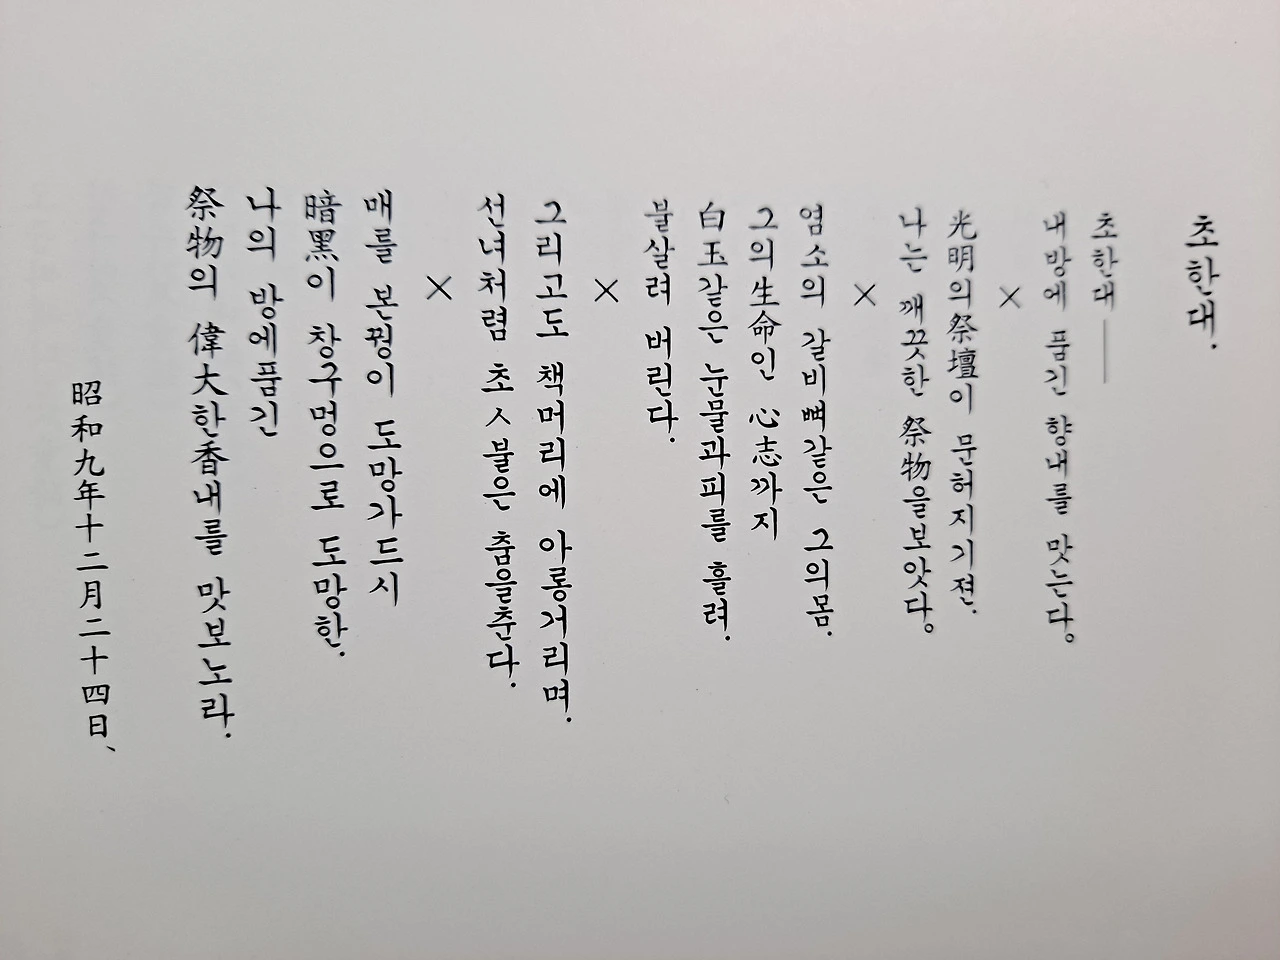 초한대.
초한대 ——
내방에 품긴 향내를 맛는다。
×
光明의祭壇이 문허지기젼.
나는 깨끗한 祭物을보앗다。
×
염소의 갈비뼈같은 그의몸.
그의生命인 心志까지
白玉같은 눈물과피를 흘려.
불살려 버린다.
×
그리고도 책머리에 아롱거리며.
선녀처렴 초ㅅ불은 춤을춘다.
×
매를 본꿩이 도망가드시
暗黑이 창구멍으로 도망한.
나의 방에품긴
祭物의 偉大한香내를 맛보노라.
昭和九年十二月二十四日、